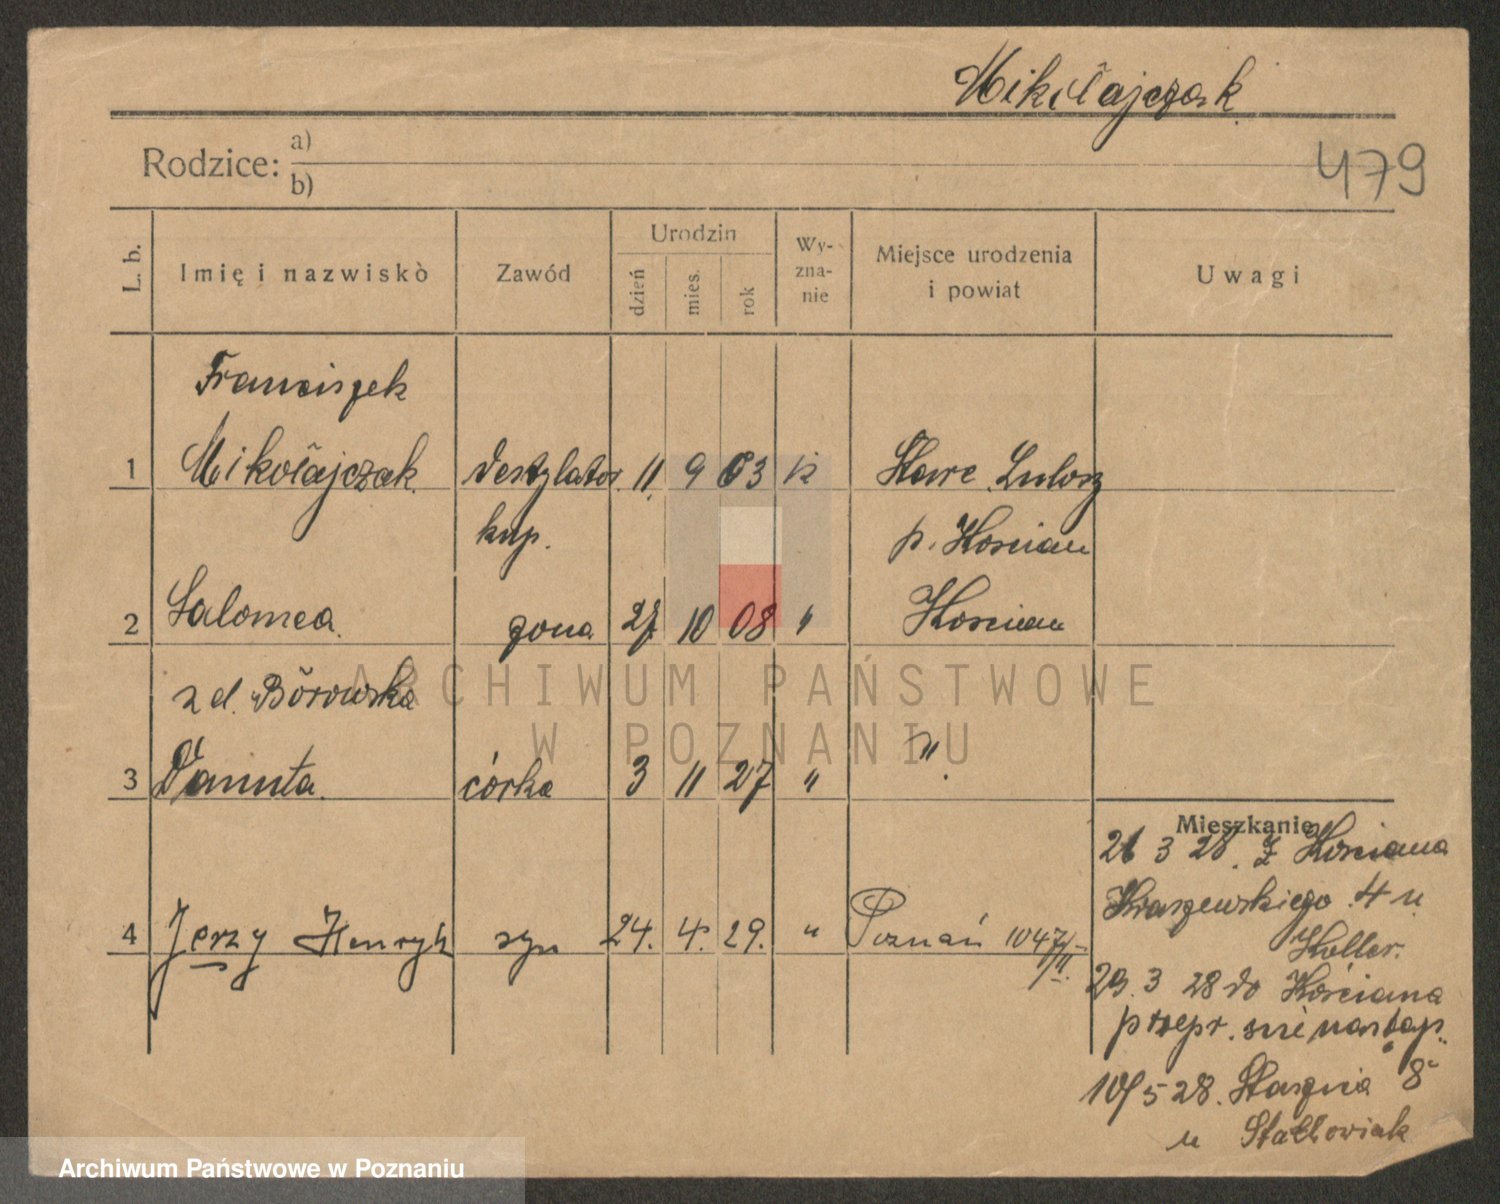 Mikołajczak
479
Rodzice: a)
b)
L. b. Imię i nazwisko Zawód Urodzin dzień mies. rok Wyznanie Miejsce urodzenia i powiat Uwagi
Franciszek
1 Mikołajczak destylator 11. 9 03 k Stare
kup. p. Kościan
2 Salomea gona 27 10 08 " Kościan
z d. Borowska
3 Danuta. córka 3 11 27 " "
4 Jerzy Henryk syn 24. 4. 29. " Poznań 1047/II.
Mieszkanie
26 3 28. z Kościana
Kraszewskiego 4 u
Koller.
29. 3 28 do Kościana
przepr. nie nastąp.
10/5 28. Staszica 8
u Stachowiak
ARCHIWUM PAŃSTWOWE
W POZNANIU
Archiwum Państwowe w Poznaniu